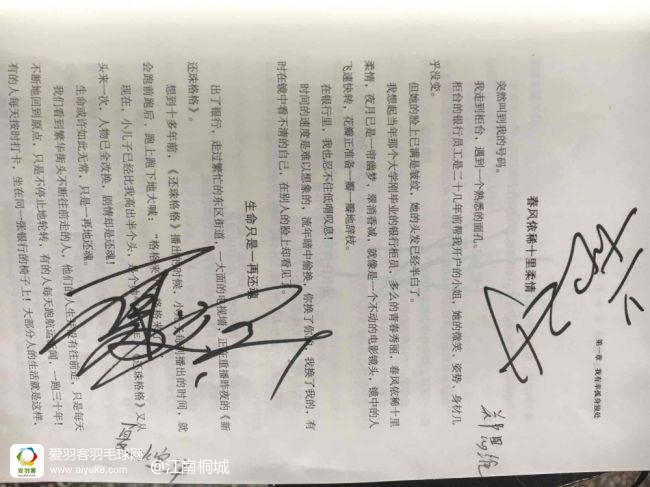 第一章
春风依稀十里柔情
突然叫到我的号码。
我走到柜台，遇到一个熟悉的面孔。
柜台的银行员工是二十几年前帮我开户的小姐，她的微笑、姿势、身材几
乎没变。
但她的脸上已满是皱纹，她的头发已经半白了。
我想起当年那个大学刚毕业的银行柜员，多么的青春秀丽，春风依稀十里
柔情，夜月已是一帘幽梦，翠消香减，就像是一个不动的电影镜头，镜中的人
飞速快转，花瓣正准备一瓣一瓣地辞枝。
在银行里，我也忍不住低喟叹息！
时间的速度是难以想象的，流年暗中偷换，你换了你的，我换了我的，有
时在镜中看不清的自己，在别人的脸上却看见了。
生命只是一再还魂
出了银行，走过繁忙的东区街道，一大面的电视墙，正在重播昨夜的《新
还珠格格》。
想到十多年前，《还珠格格》播出的时候，小儿子每到播出的时间，就
会跑前跑后、跑上跑下地大喊："格格来
现在，小儿子已经比我高出半个头，《还珠格格》又从
头来一次，人物已全改换，剧情却是还魂！
生命或许如此无常，只是一再地还魂。
我们看到繁华街头不断往前走的人，他们的人生并没有往前走，只是每天
不断地回到原点，只是不停止地轮转，有的人每天跑航运新闻，一跑三十年！
有的人每天按时打卡，坐在同一张银行的椅子上！大部分人的生活就是这样，
爱羽客羽毛球网
www.aiyuke.com
@江南桐城